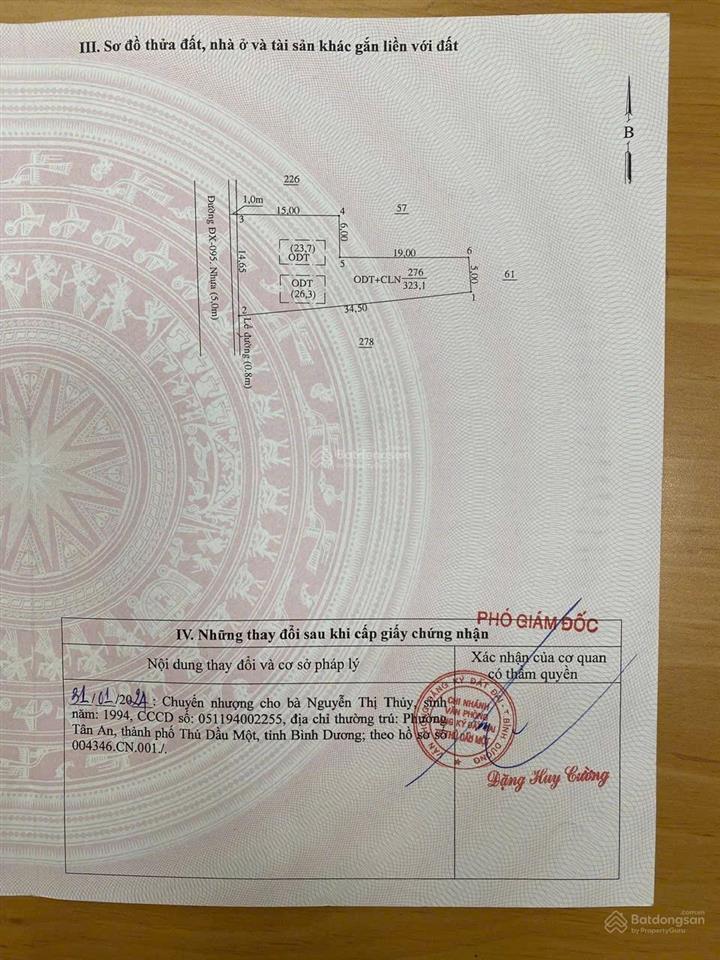 III. Sơ đồ thửa đất, nhà ở và tài sản khác gắn liền với đất
B
226
1,0m
3
15,00
4
57
Đường ĐX-095. Nhựa (5.0m)
14,65
(23,7)
ODT
6,00
5
19,00
6
ODT
(26,3)
ODT+CLN
276
323,1
5,00
61
1
2
34,50
Lề đường (0.8m)
278
Batdongsan
by PropertyGuru
PHÓ GIÁM ĐỐC
IV. Những thay đổi sau khi cấp giấy chứng nhận
Nội dung thay đổi và cơ sở pháp lý
Xác nhận của cơ quan
có thẩm quyền
31/01/2024: Chuyển nhượng cho bà Nguyễn Thị Thủy, sinh
năm: 1994, CCCD số: 051194002255, địa chỉ thường trú: Phường
Tân An, thành phố Thủ Dầu Một, tỉnh Bình Dương; theo hồ sơ số
004346.CN.001./.
CHI NHÁNH
VĂN PHÒNG
ĐĂNG KÝ ĐẤT ĐAI
THỦ DẦU MỘT
VĂN PHÒNG ĐĂNG KÝ ĐẤT ĐAI T. BÌNH DƯƠNG
Đặng Huy Cường
Batdongsan.com.vn
by PropertyGuru